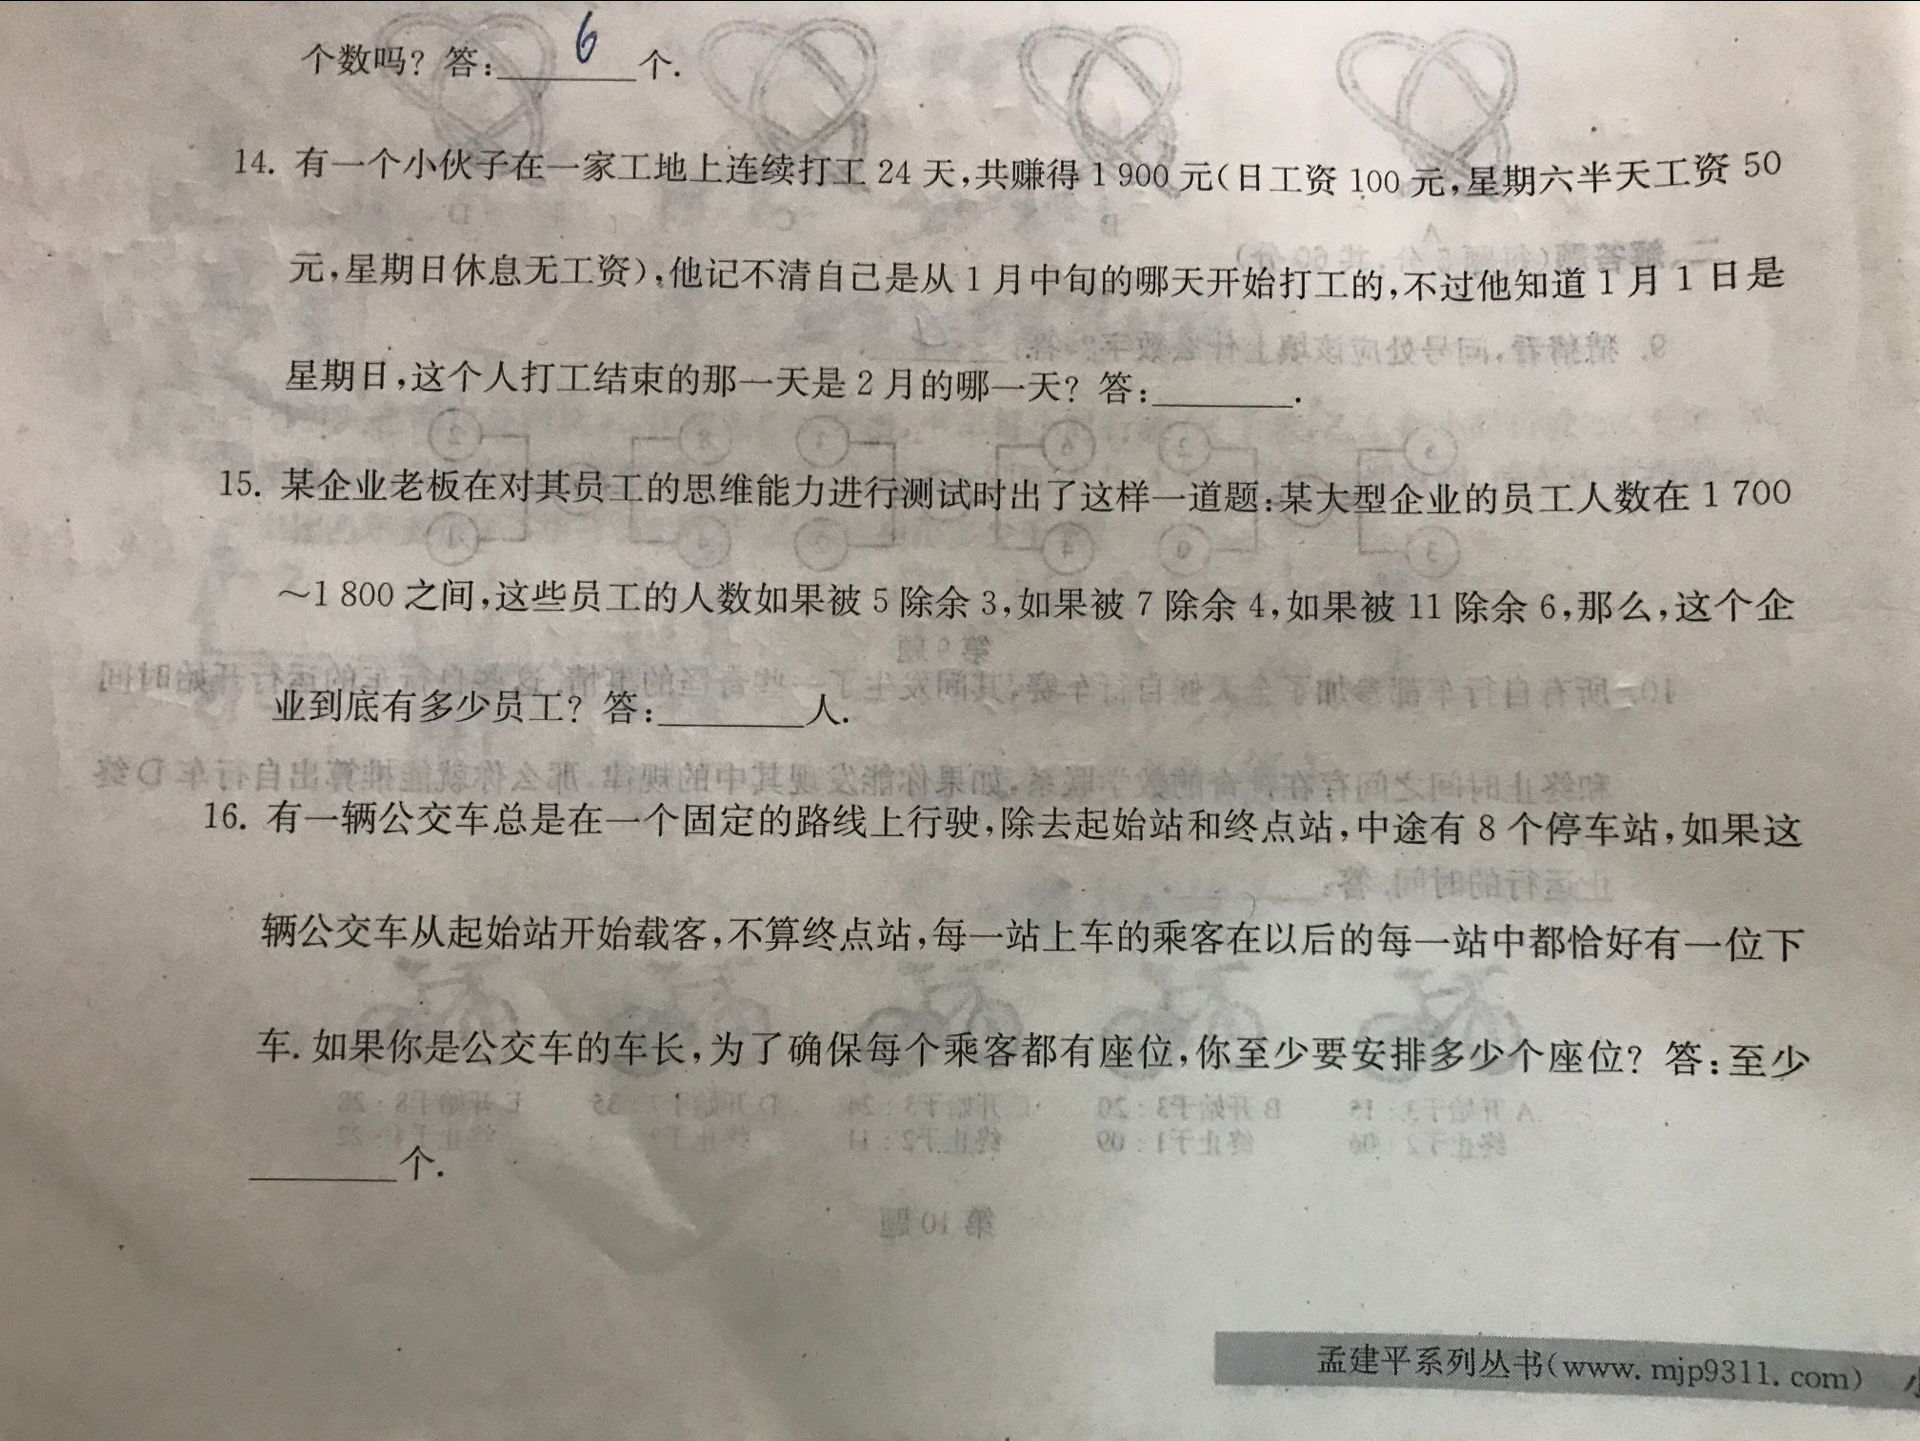 个数吗？答：6个.
14. 有一个小伙子在一家工地上连续打工 24 天，共赚得 1 900 元（日工资 100 元，星期六半天工资 50
元，星期日休息无工资），他记不清自己是从 1 月中旬的哪天开始打工的，不过他知道 1 月 1 日是
星期日，这个人打工结束的那一天是 2 月的哪一天？答：________.
15. 某企业老板在对其员工的思维能力进行测试时出了这样一道题：某大型企业的员工人数在 1 700
～1 800 之间，这些员工的人数如果被 5 除余 3，如果被 7 除余 4，如果被 11 除余 6，那么，这个企
业到底有多少员工？答：________人.
16. 有一辆公交车总是在一个固定的路线上行驶，除去起始站和终点站，中途有 8 个停车站，如果这
辆公交车从起始站开始载客，不算终点站，每一站上车的乘客在以后的每一站中都恰好有一位下
车. 如果你是公交车的车长，为了确保每个乘客都有座位，你至少要安排多少个座位？答：至少
________个.
孟建平系列丛书（www. mjp9311. com）